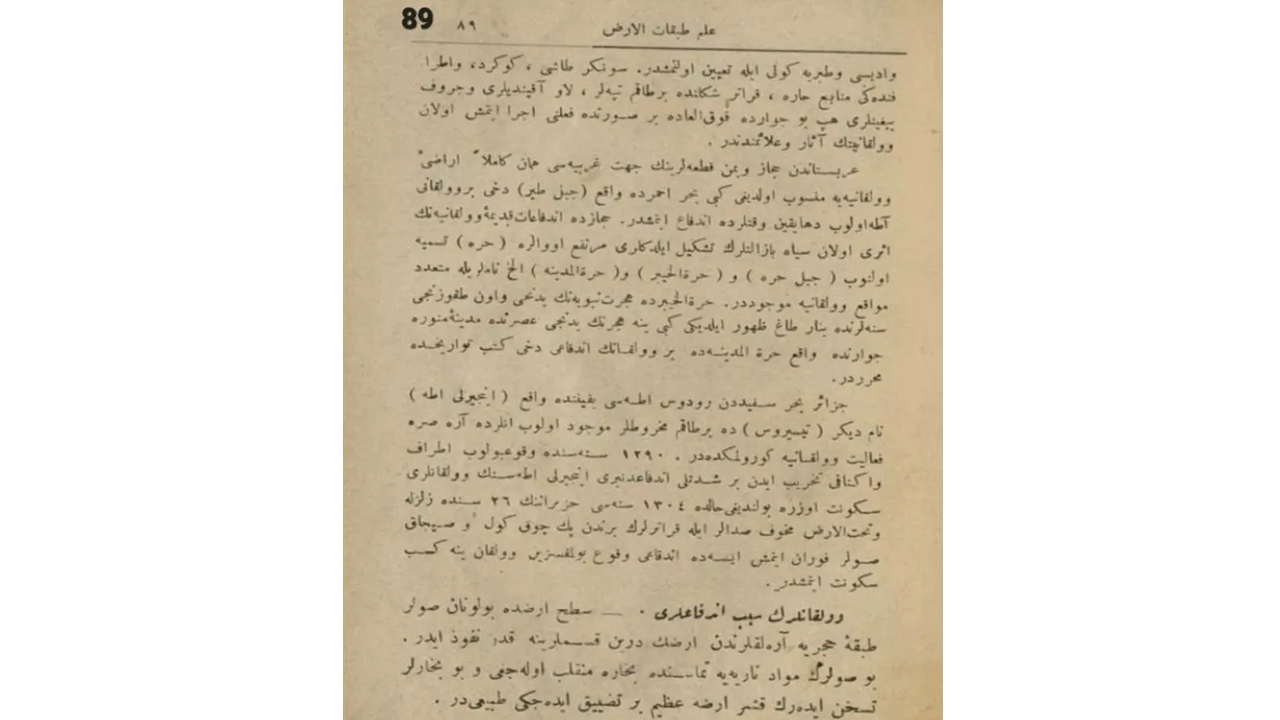 89 ٨٩ علم طبقات الارض
واديسى وطبريه كولى ايله تعيين اولنمشدر. سونكر طاشى ، كوكرد، واطرا
فنده‌كى منابع حاره ، قراتر شكلنده برطاقم تپه‌لر ، لاو آقينديلرى وجروف
ييغينلرى هپ بو جوارده فوق‌العاده بر صورتده فعلنى اجرا ايتمش اولان
وولقانيتك آثار وعلائمندندر .
عربستاندن حجاز ويمن قطعه‌لرينك جهت غربيه‌سى همان كاملاً اراضئ
وولقانيه‌يه منسوب اولديغى كبى بحر احمرده واقع (جبل طير) دخى بروولقانى
آطه‌اولوب دهايقين وقتلرده اندفاع ايتمشدر. حجازده اندفاعات‌قديمۀ‌وولقانيه‌نك
اثرى اولان سياه بازالتلرك تشكيل ايلدكلرى مرتفع اووالره ( حره ) تسميه
اولنوب ( جبل حره ) و ( حرة‌الخيبر ) و( حرة‌المدينه ) الخ ناملريله متعدد
مواقع وولقانيه موجوددر. حرة‌الخيبرده هجرت‌نبويه‌نك يدنجى واون طقوزنجى
سنه‌لرنده ينار طاغ ظهور ايلديكى كبى ينه هجرتك يدنجى عصرنده مدينۀ‌منوره
جوارنده واقع حرة المدينه‌ده بر وولقانك اندفاعى دخى كتب تواريخده
محرردر.
جزائر بحر سفيددن رودوس اطه‌سى يقيننده واقع ( اينجيرلى اطه )
نام ديكر ( نيسيروس ) ده برطاقم مخروطلر موجود اولوب انلرده آره صره
فعاليت وولقانيه كورولمكده‌در . ١٢٩٠ سنه‌سنده وقوعبولوب اطراف
واكنافى تخريب ايدن بر شدتلى اندفاعدنبرى اينجيرلى اطه‌سنك وولقانلرى
سكونت اوزره بولنديغى‌حالده ١٣٠٤ سنه‌سى حزيراننك ٢٦ سنده زلزله
وتحت‌الارض مخوف صدالر ايله قراترلرك برندن پك چوق كول و صيجاق
صولر فوران ايتمش ايسه‌ده اندفاعى وقوع بولمقسزين وولقان ينه كسب
سكونت ايتمشدر.
وولقانلرك سبب اندفاعلرى . — سطح ارضده بولونان صولر
طبقۀ حجريه آره‌لقلرندن ارضك درين قسملرينه قدر نفوذ ايدر .
بو صولرك مواد ناريه‌يه تماسنده بخاره منقلب اوله‌جغى و بو بخارلر
تسخن ايده‌رك قشر ارضه عظيم بر تضييق ايده‌جكى طبيعى‌در .